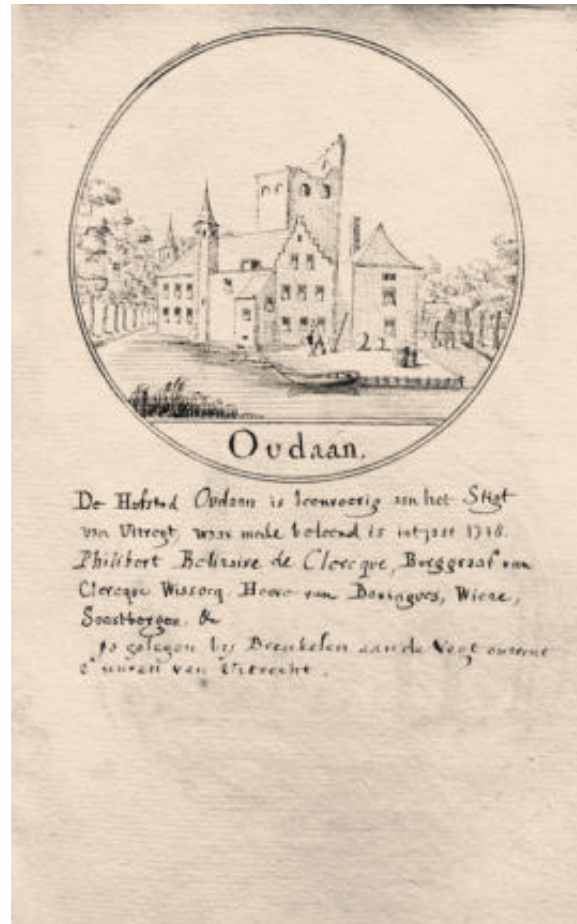 Oudaan.
De Hofsted Oudaan is leenroerig aan het Stigt
van Utregt, waar mede beleend is int jaar
Philibert de Clercque, Borggraaf van
Clercque Wissocq Heere van Wiere,
Soestbergen &
is gelegen bij Breukelen aan de Vegt
2 uuren van Uitrecht.